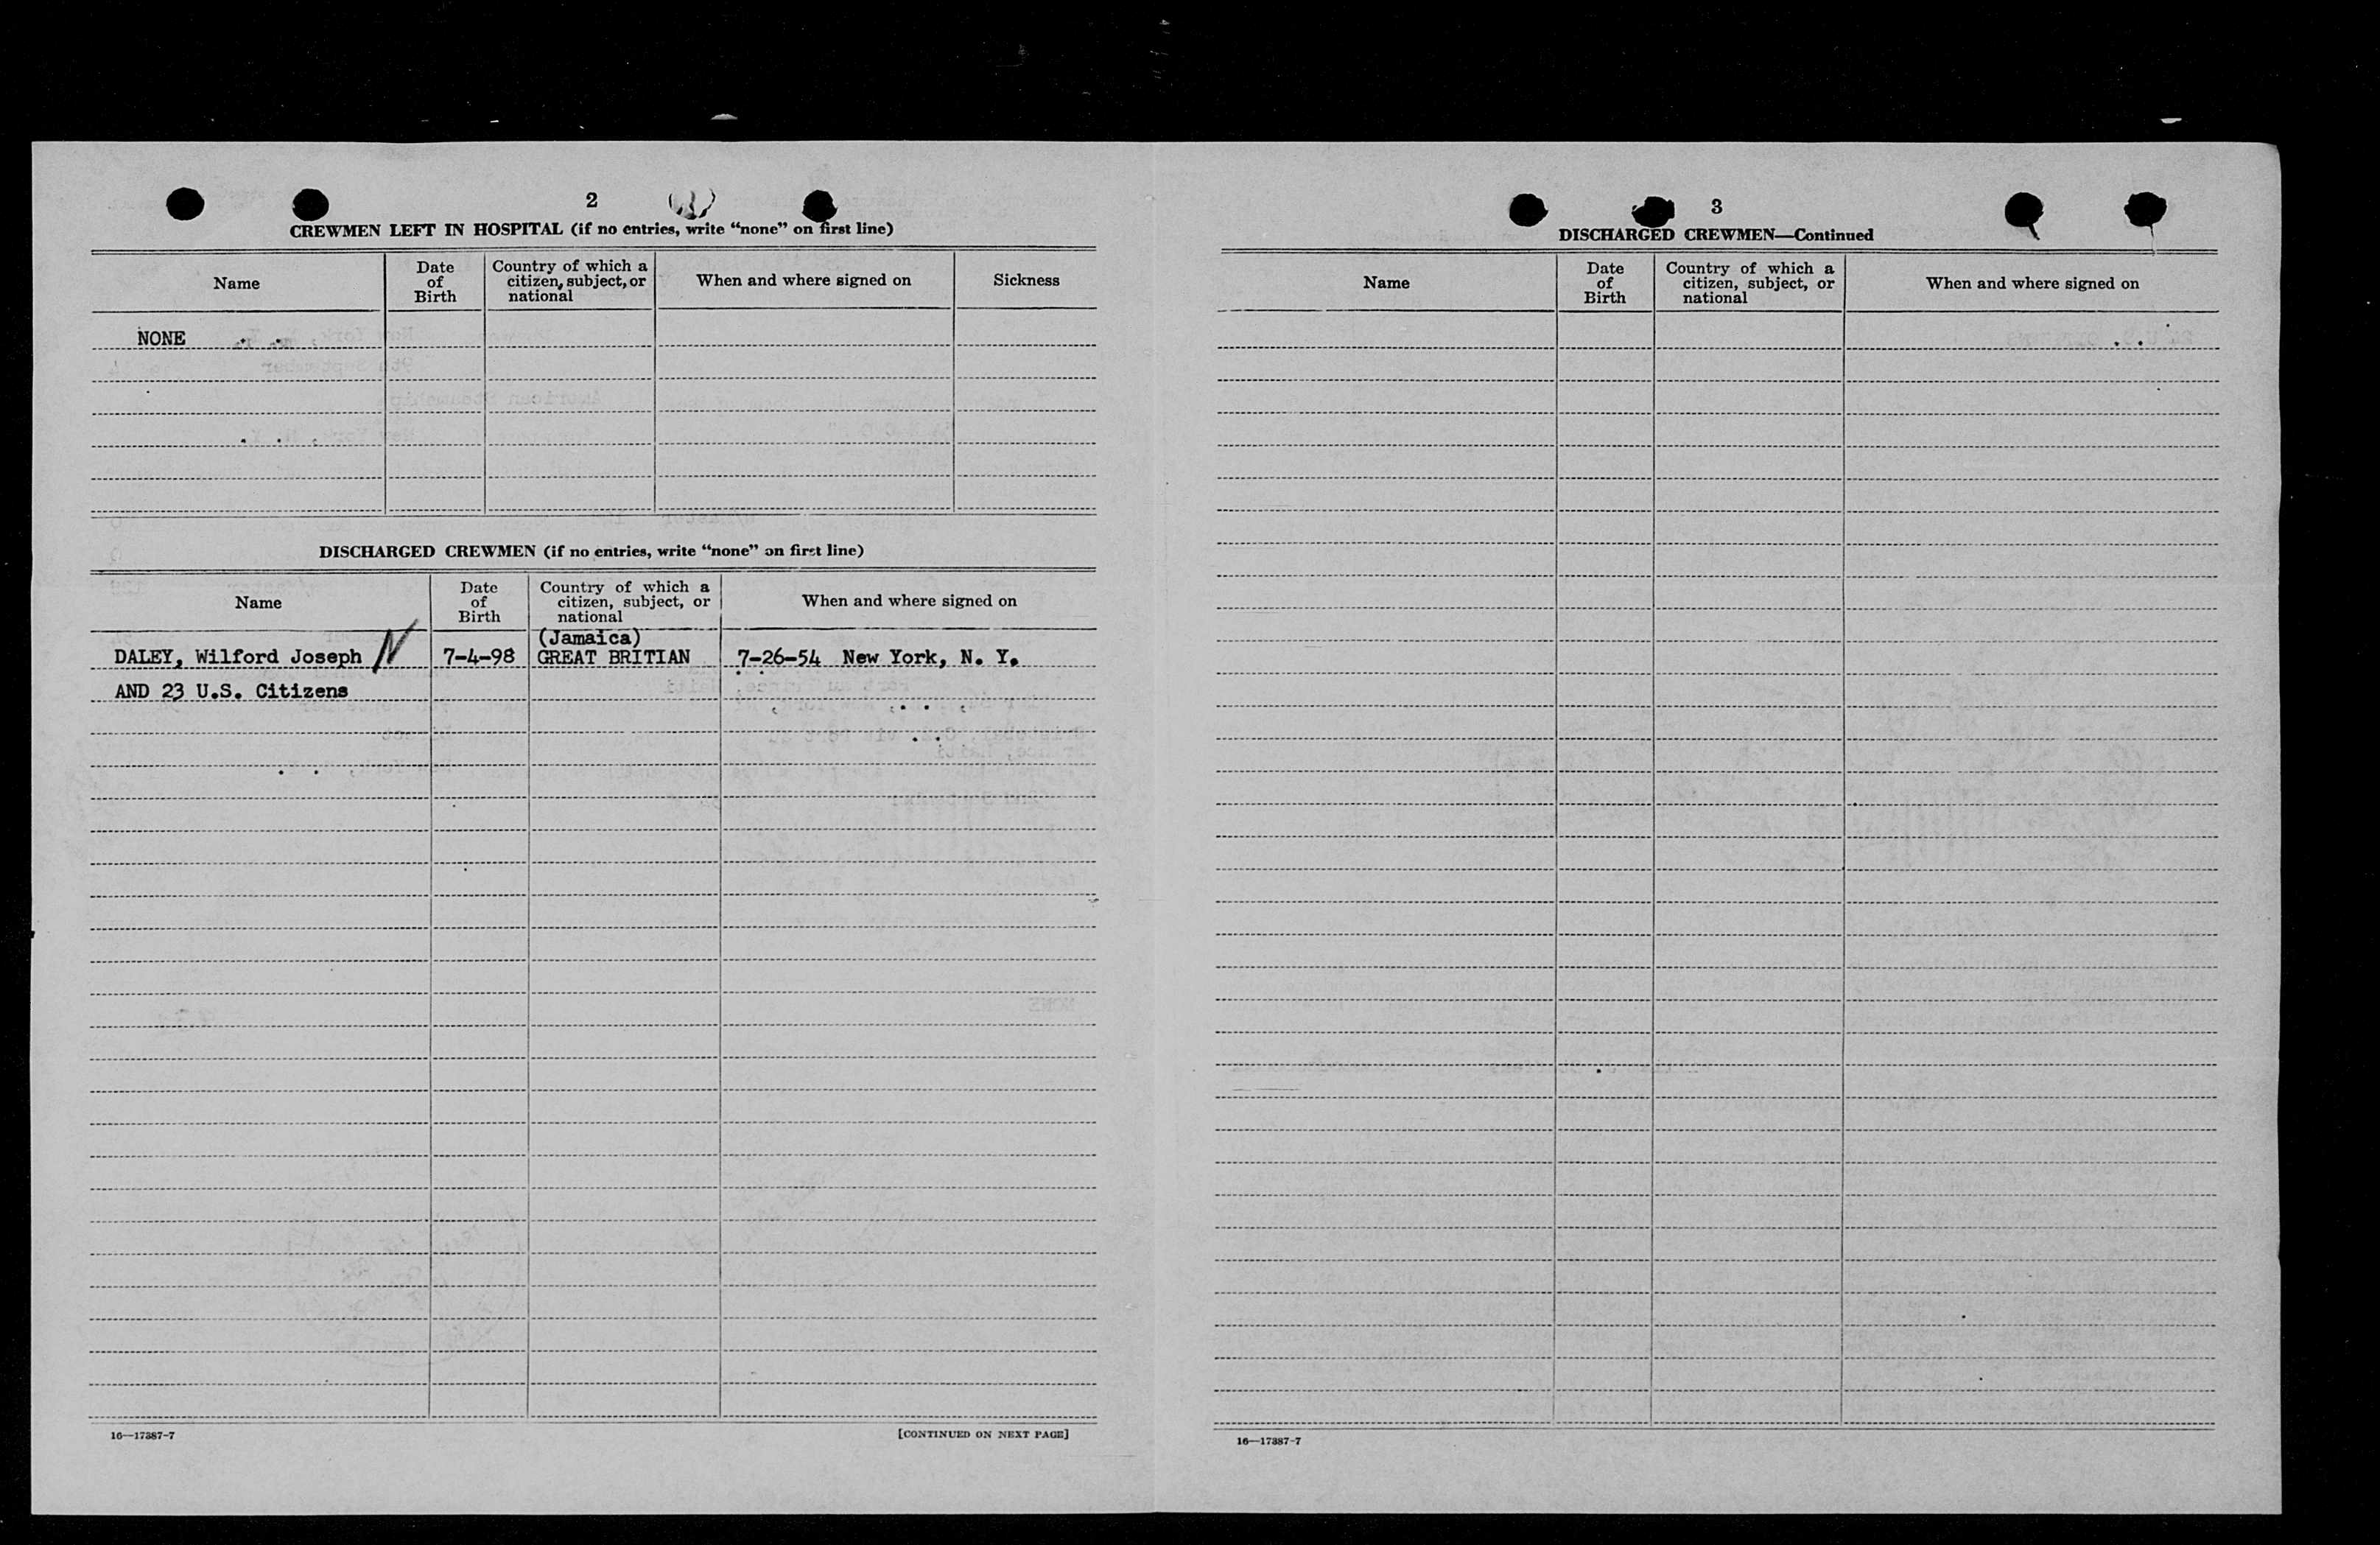 2
CREWMEN LEFT IN HOSPITAL (if no entries, write “none” on first line)
Name
Date of Birth
Country of which a citizen, subject, or national
When and where signed on
Sickness
NONE
DISCHARGED CREWMEN (if no entries, write “none” on first line)
Name
Date of Birth
Country of which a citizen, subject, or national
When and where signed on
(Jamaica)
DALEY, Wilford Joseph N 7-4-98 GREAT BRITIAN 7-26-54 New York, N. Y.
AND 23 U.S. Citizens
16—17387-7
[CONTINUED ON NEXT PAGE]
3
DISCHARGED CREWMEN—Continued
Name
Date of Birth
Country of which a citizen, subject, or national
When and where signed on
16—17387-7